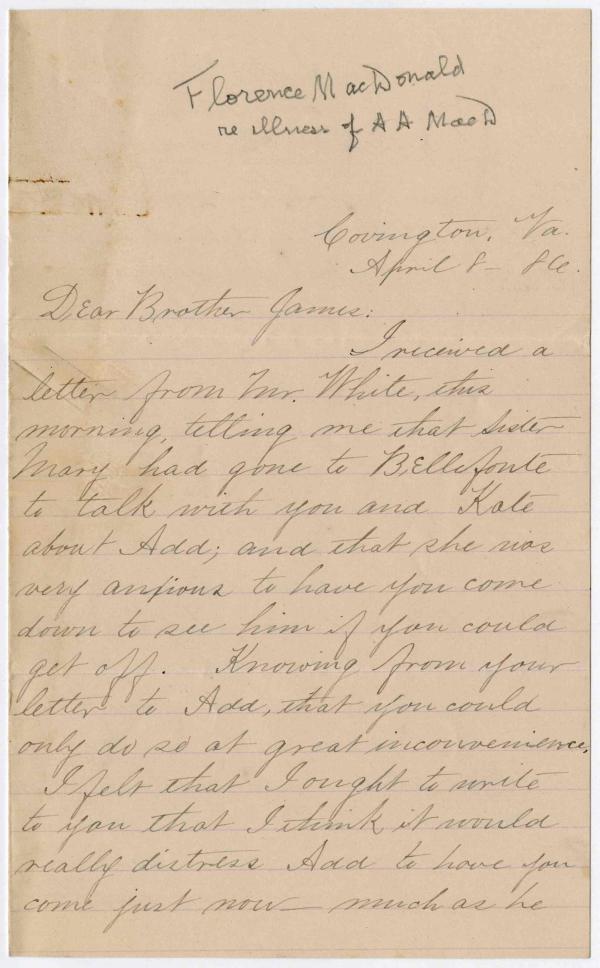 Florence MacDonald
re illness of A A MacD
Covington, Va.
April 8 - 86.
Dear Brother James:
I received a
letter from Mr. White, this
morning, telling me that Sister
Mary had gone to Bellefonte
to talk with you and Kate
about Add; and that she was
very anxious to have you come
down to see him if you could
get off. Knowing from your
letter to Add, that you could
only do so at great inconvenience,
I felt that I ought to write
to you that I think it would
really distress Add to have you
come just now — much as he